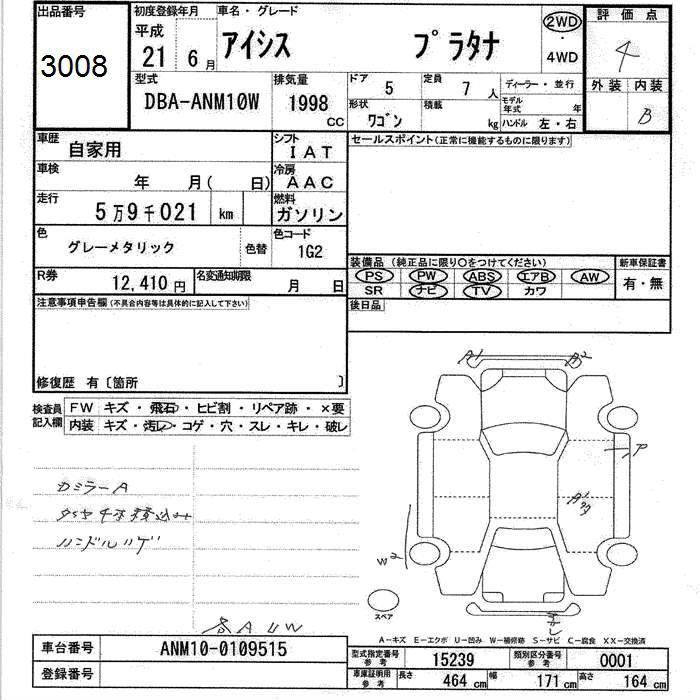 出品番号 初度登録年月 車名・グレード 2WD 評価点
3008 平成 21 6月 アイシス プラタナ 4WD 4
型式 排気量 ドア 5 定員 7人 ディーラー・並行 外装 内装
DBA-ANM10W 1998cc 形状 ワゴン 積載 kg モデル年式 年 B
ハンドル 左・右
車歴 自家用 シフト IAT セールスポイント(正常に機能するものに限ります)
車検 年 月( 日) 冷房 AAC
走行 5万9千021 km 燃料 ガソリン
色 グレーメタリック 色替 色コード 1G2
装備品 (純正品に限り○をつけてください) 新車保証書
R券 12,410円 名変通知期限 月 日 PS PW ABS エアB AW 有・無
SR ナビ TV カワ
注意事項申告欄(不具合内容等は具体的に記入して下さい) 後日品
修復歴 有〔箇所 〕
検査員記入欄 FW キズ・飛石・ヒビ割・リペア跡・×要
内装 キズ・汚レ・コゲ・穴・スレ・キレ・破レ
A1 A2
カミラーA
ハンドルハゲ
W2
スペア
A-キズ E-エクボ U-凹み W-補修跡 S-サビ C-腐食 XX-交換済
車台番号 ANM10-0109515 型式指定番号 参考 15239 類別区分番号 参考 0001
登録番号 車庫証明用 参考 長さ 464cm 幅 171cm 高さ 164cm